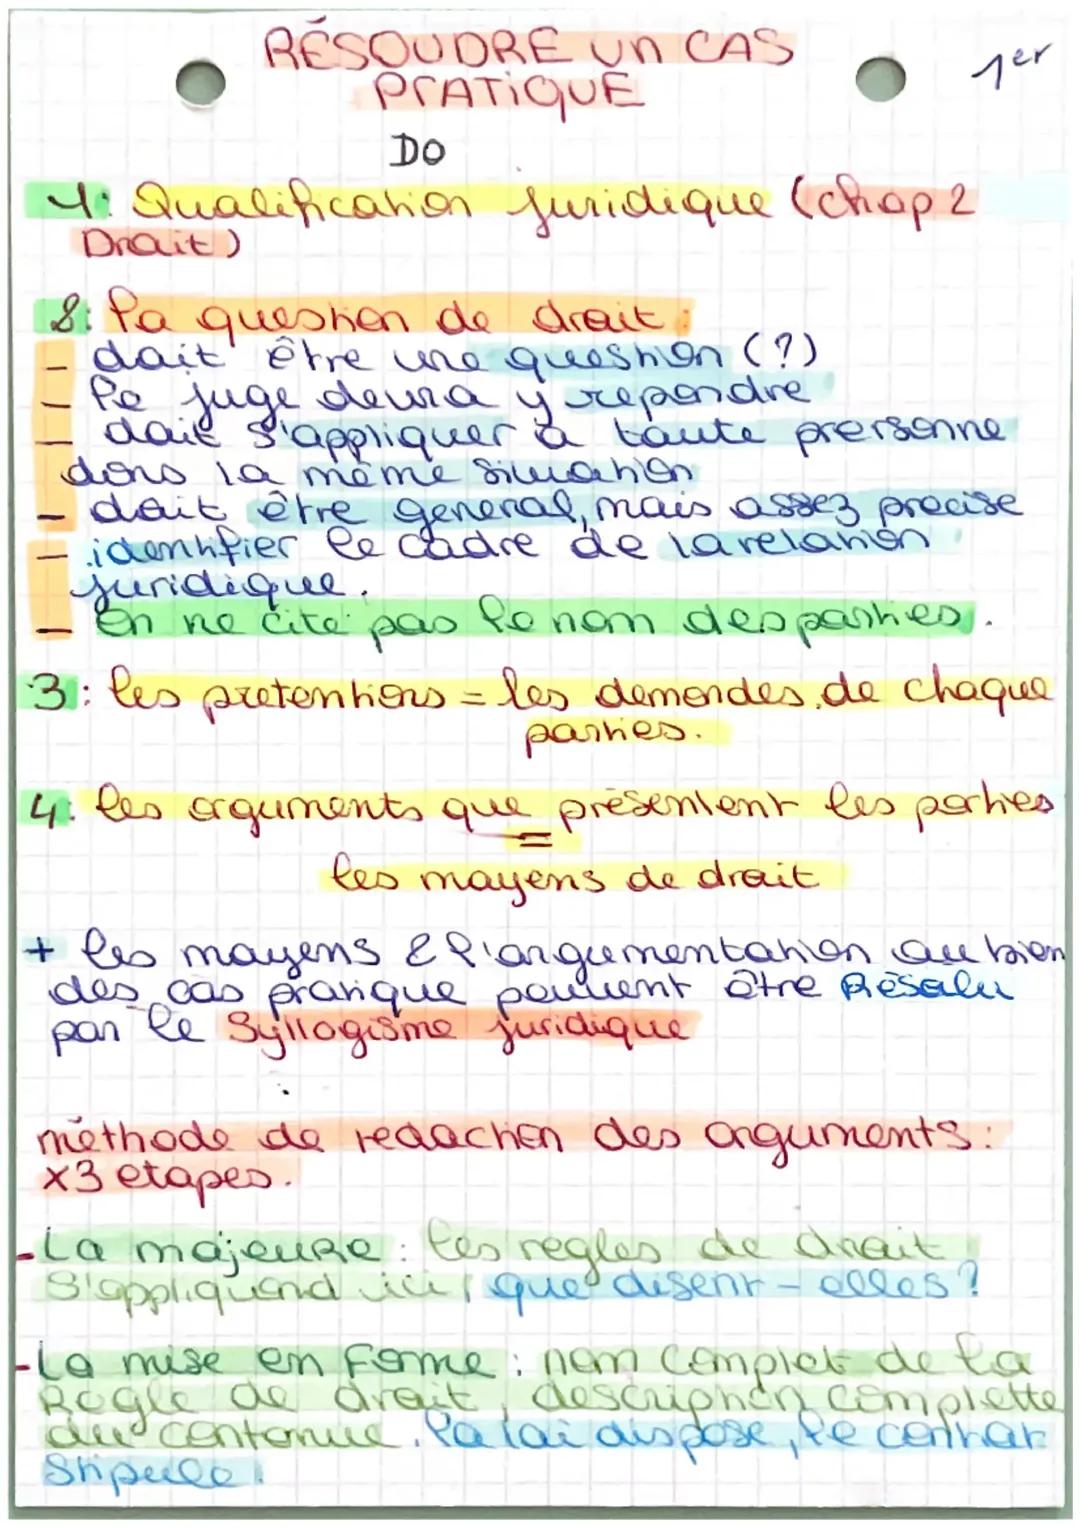 RÉSOUDRE un CAS
PratiQUE
1er
DO
1: Qualification juridique (chap 2
Droit)
2: la question de droit:
- doit être une question (?)
- le juge devra y repondre
- doit s'appliquer à toute prersonne
dans la même situation
- doit être general, mais assez precise
- identifier le cadre de la relation
juridique.
- on ne cite pas le nom des parties.
3: les pretentions = les demandes de chaque
parties.
4: les arguments que présentent les parties
=
les moyens de droit
+ les moyens & l'argumentation au bien
des cas pratique peuvent être Résolu
par le Syllogisme juridique
méthode de redaction des arguments:
x3 etapes.
- La majeure: les regles de droit
s'appliquand ici, que disent-elles?
- La mise en forme: nom complet de la
Règle de droit, description complette
du contenue. la loi dispose, le contrat
Stipule.